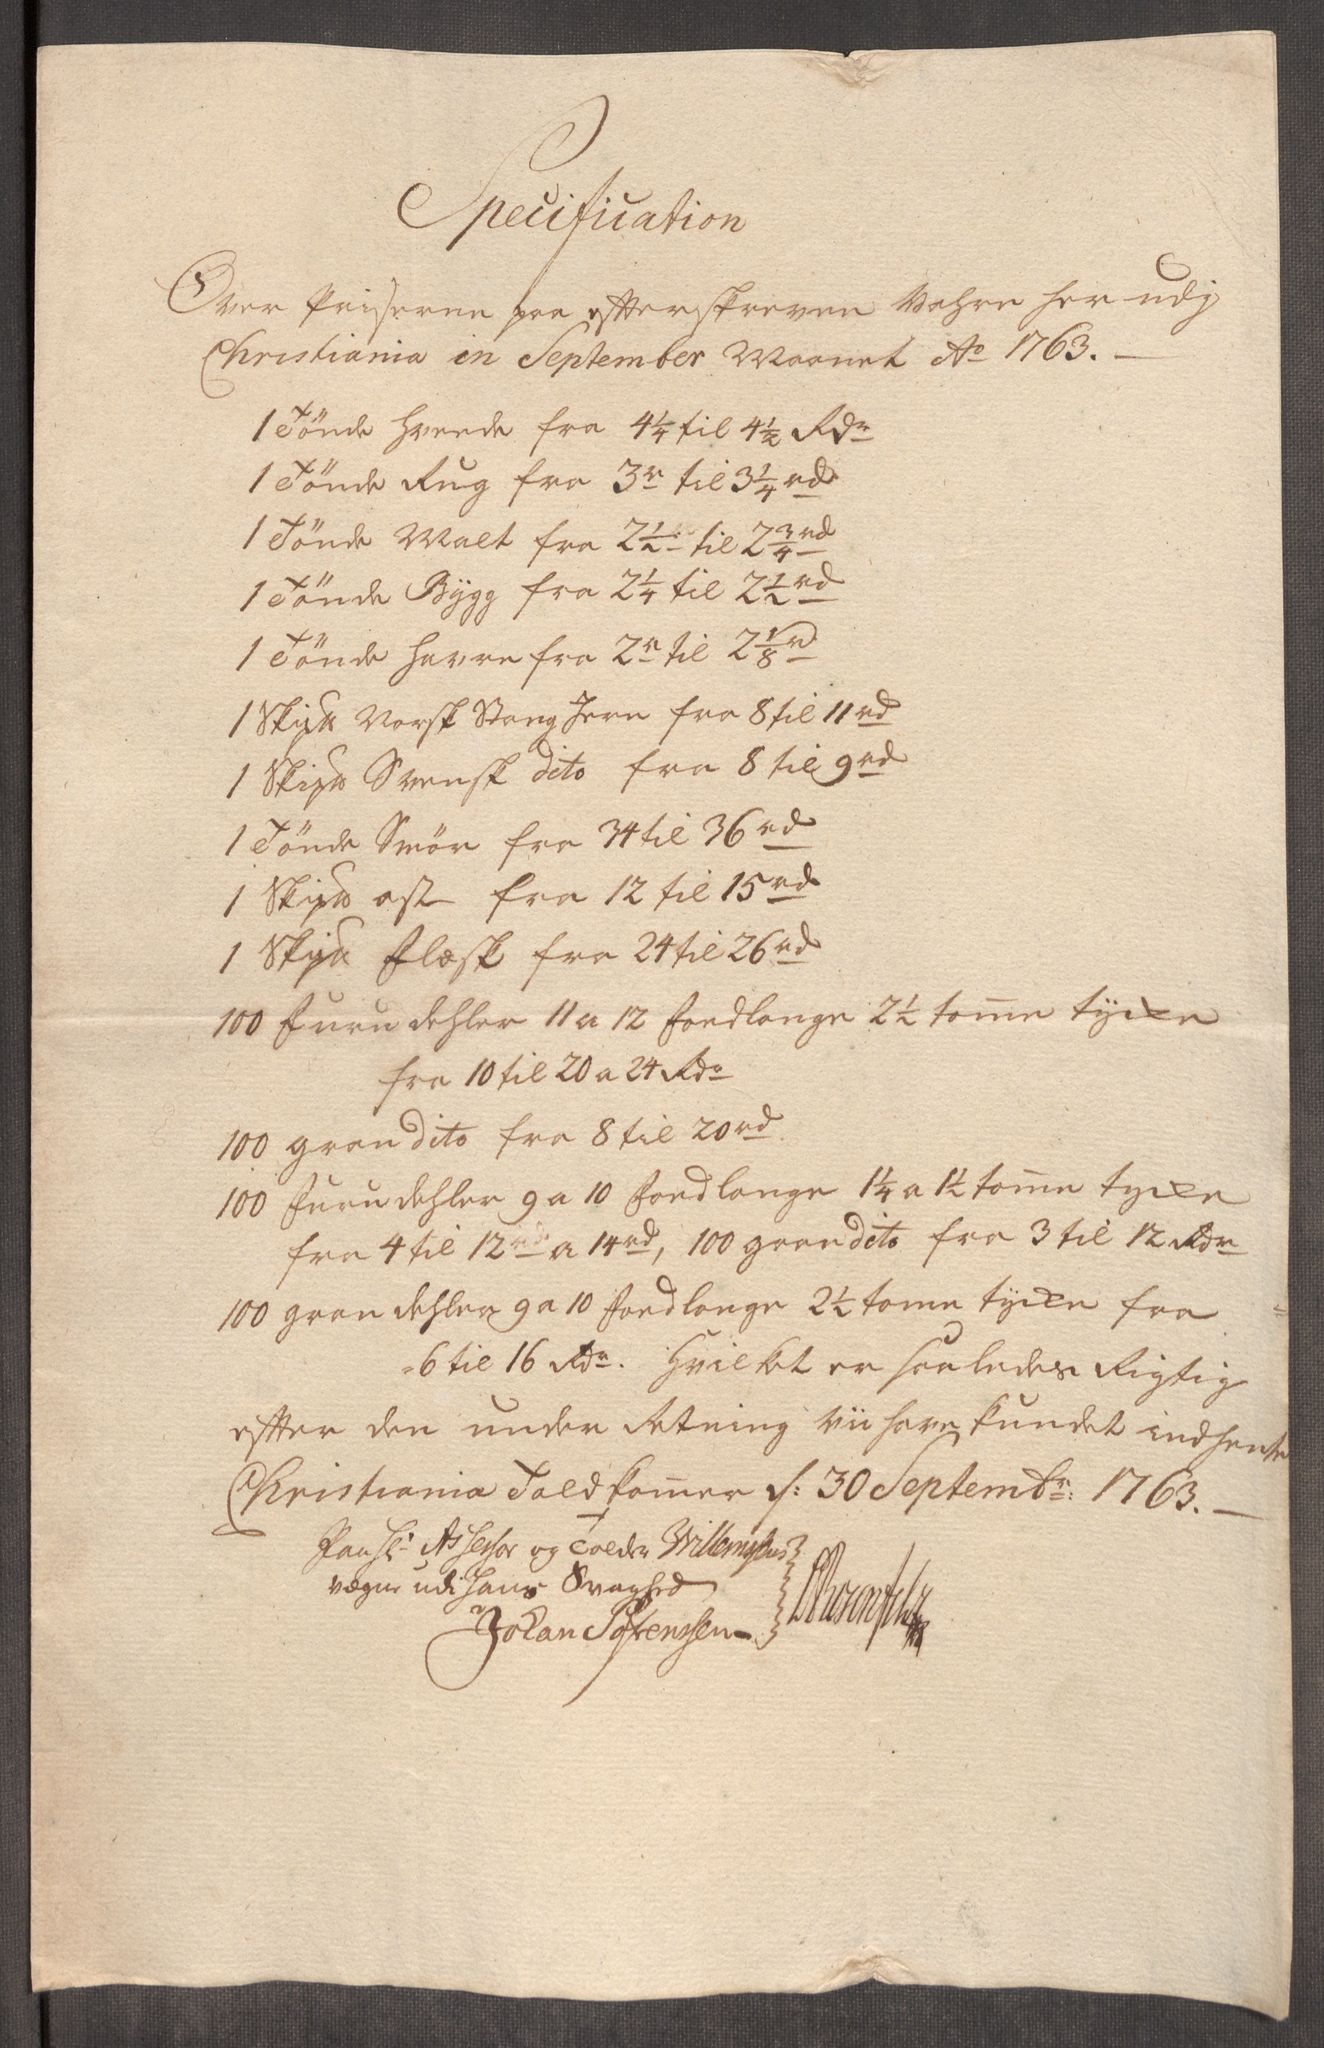 Specification
Over Priserne paa effterskrevne Vahre her udj
Christiania in September Maanet Ao 1763. —
1 Tönde Hvede fra 4¼ til 4½ Rdr
1 Tönde Rug fra 3r til 3¼ rd
1 Tönde Malt fra 2½ til 2¾ rd
1 Tönde Bÿgg fra 2¼ til 2½ rd
1 Tönde Havre fra 2r til 2⅛ r
1 Skip℔ Norsk Stang Jern fra 8 til 11 rd
1 Skip℔ Svensk dito fra 8 til 9 rd
1 Tönde Smör fra 34 til 36 rd
1 Skip℔ ost fra 12 til 15 rd
1 Skip℔ Flæsk fra 24 til 26 rd
100 Furu dehler 11 a 12 foed lange 2½ tom̄e tÿcke
fra 10 til 20 a 24 Rdr
100 gran dito fra 8 til 20 rd
100 Furu dehler 9 a 10 foed lange 1¼ a 1½ tom̄e tycke
fra 4 til 12 rd a 14 rd, 100 gran dito fra 3 til 12 Rdr
100 gran dehler 9 a 10 foed lange 2½ tome tÿcke fra
6 til 16 Rdr. Hvilket er saaledes Rigtig
effter den under Retning vii have kundet indhente
Christiania Told kam̄er d: 30 Septembr: 1763. —
Paa Hr Assessor og Tolder Willemsens
vegne udi Hans Svaghed
Johan Sørenssen